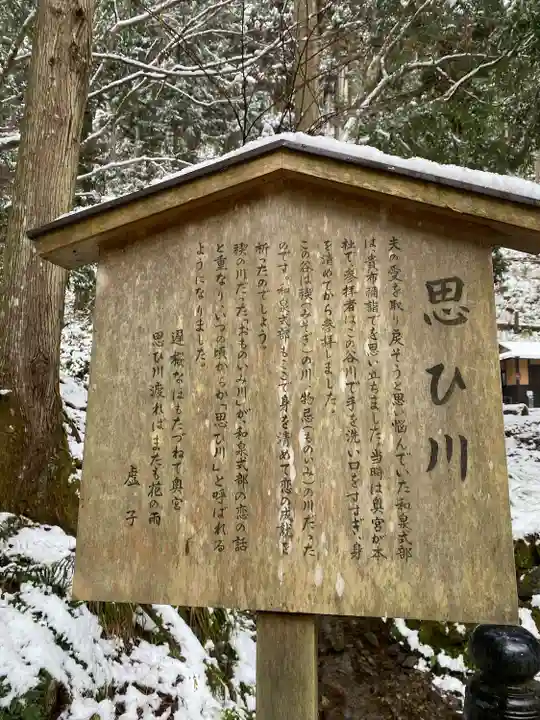 思ひ川
夫の愛を取り戻そうと思い悩んでいた和泉式部
は、貴布禰詣でを思い立ちました。当時は奥宮が本
社で、参拝者はこの谷川で手を洗い口をすすぎ、身
を清めてから参拝しました。
この谷は禊(みそぎ)の川、物忌(ものいみ)の川だった
のです。和泉式部もここで身を清めて恋の成就を
祈ったのでしょう。
禊の川だった「おものいみ川」が、和泉式部の恋の話
と重なり、いつの頃からか「思ひ川」と呼ばれる
ようになりました。
遅桜なほもたづねて奥宮
思ひ川渡ればまたも花の雨
虚子